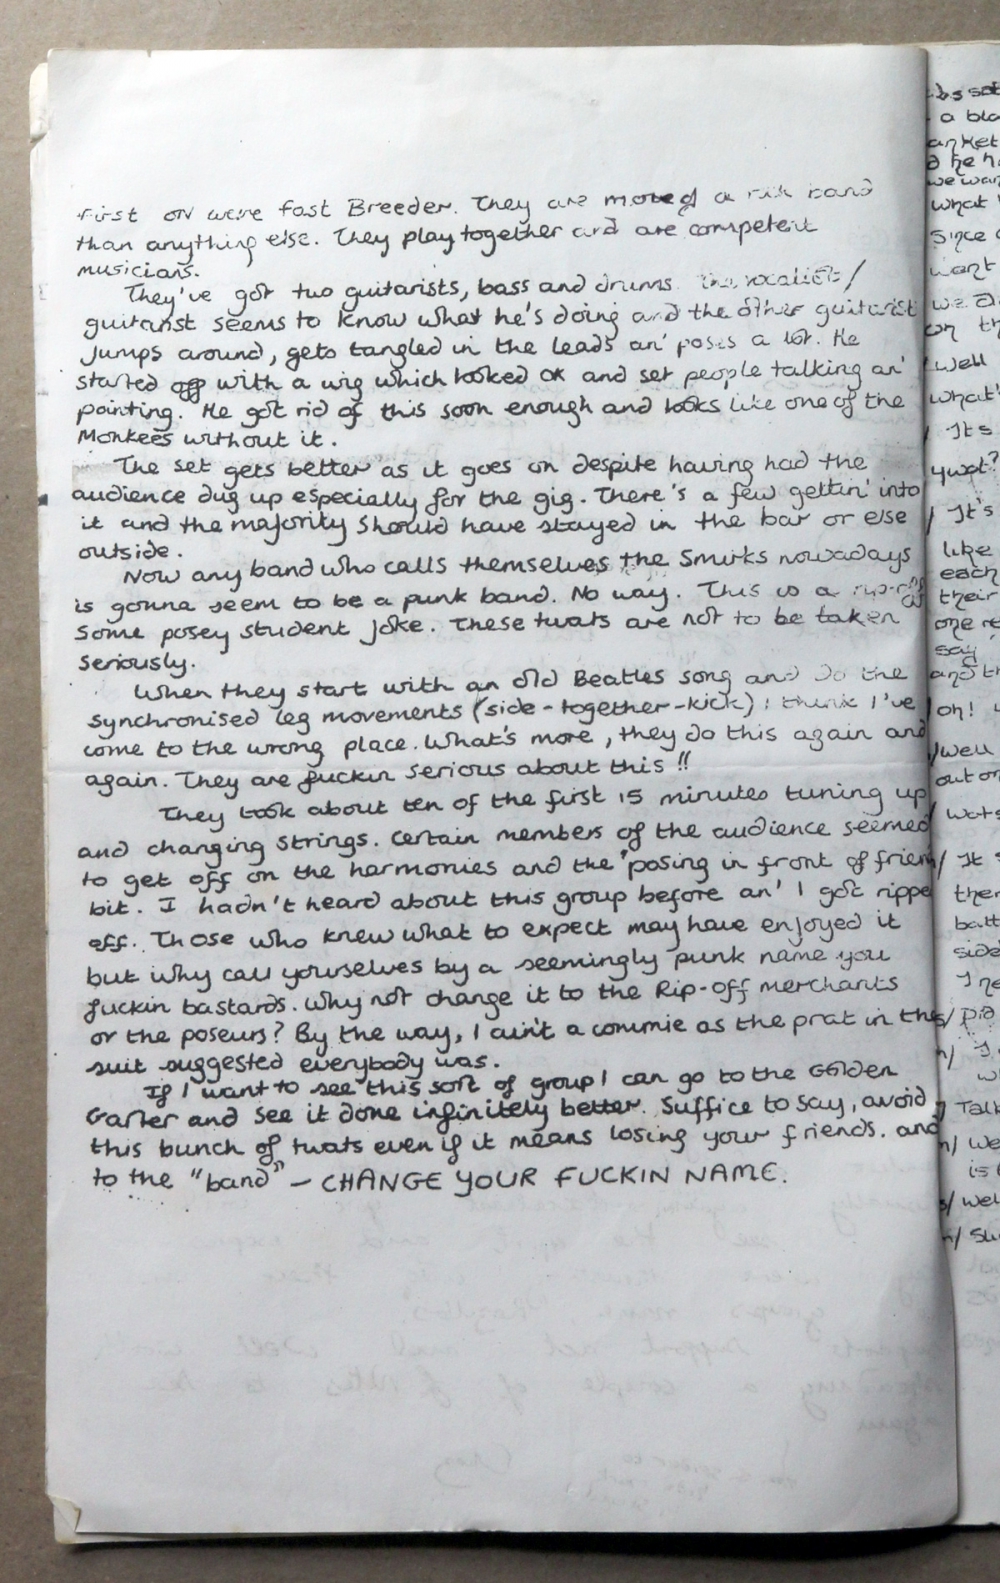 First on were fast Breeder. They are more of a rock band
than anything else. They play together and are competent
musicians.
They've got two guitarists, bass and drums. The vocalist/
guitarist seems to know what he's doing and the other guitarist
jumps around, gets tangled in the leads an' poses a lot. He
started off with a wig which looked OK and set people talking an'
pointing. He got rid of this soon enough and looks like one of the
Monkees without it.
The set gets better as it goes on despite having had the
audience dug up especially for the gig. There's a few gettin' into
it and the majority should have stayed in the bar or else
outside.
Now any band who calls themselves the Smirks nowadays
is gonna seem to be a punk band. No way. This is a rip-off
some posey student joke. These twats are not to be taken
seriously.
When they start with an old Beatles song and do the
synchronised leg movements (side-together-kick) I think I've
come to the wrong place. What's more, they do this again and
again. They are fuckin serious about this!!
They took about ten of the first 15 minutes tuning up
and changing strings. Certain members of the audience seemed
to get off on the harmonies and the "posing in front of frien
bit. I hadn't heard about this group before an' I got rippe
off. Those who knew what to expect may have enjoyed it
but why call yourselves by a seemingly punk name you
fuckin bastards. Why not change it to the Rip-off merchants
or the poseurs? By the way, I ain't a commie as the prat in the
suit suggested everybody was.
If I want to see this sort of group I can go to the Golden
Garter and see it done infinitely better. Suffice to say, avoid
this bunch of twats even if it means losing your friends. and
to the "band" – CHANGE YOUR FUCKIN NAME.
a bla
anket
we wan
what
Since
want
we
on th
well
what'
Its
ywot?
It's
like
each
their
one re
say
and th
oh!
well
out on
It
then
batt
side
I ne
Did
I
Talk
we
is
wel